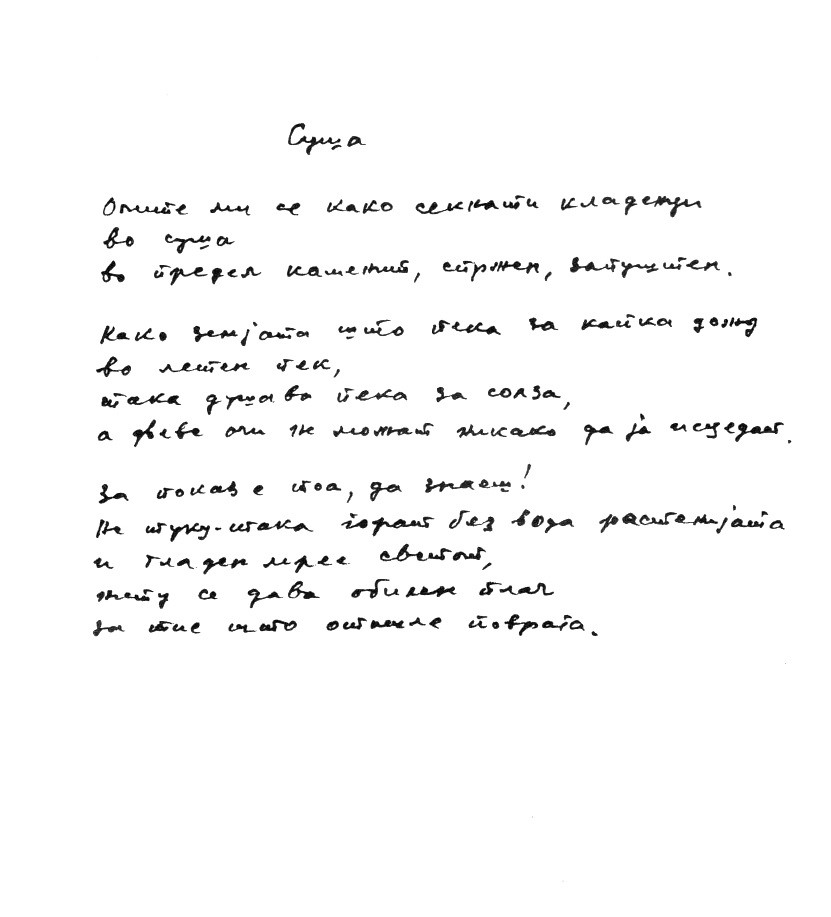 Суша
Очите ми се како секнати кладенци
во суша
во предел каменит, стрмен, запуштен.
Како земјата што пека за капка дожд
во летен пек,
така душава пека за солза,
а двеве очи не можат никако да ја исцедат.
За показ е тоа, да знаеш!
Не туку-така горат без вода растенијата
и гладен мрее светот,
ниту се дава обилен плач
за тие што отишле поврага.